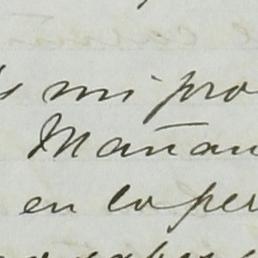 s mi pro
Mañan
en la per